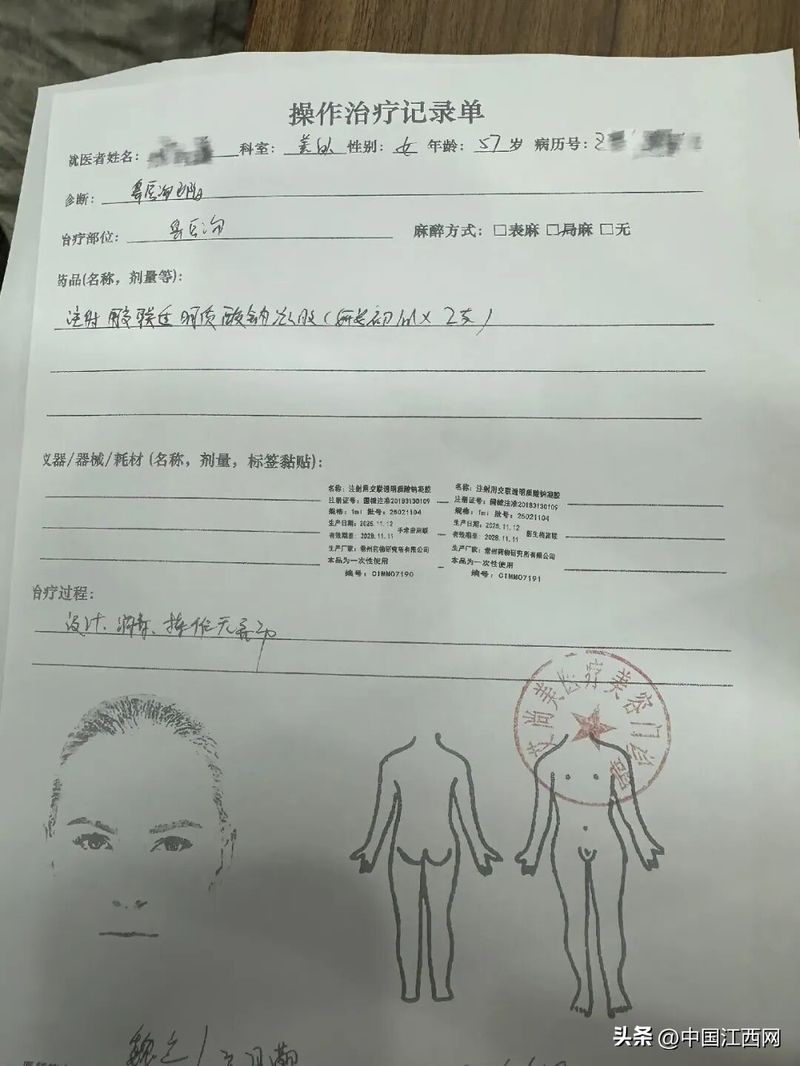 操作治疗记录单
就医者姓名： 科室：美肤 性别：女 年龄：57岁 病历号：
诊断：鼻唇沟凹陷
治疗部位：鼻唇沟 麻醉方式：□表麻 □局麻 □无
药品(名称，剂量等)：
注射用交联透明质酸钠凝胶 2支)
仪器/器械/耗材 (名称，剂量，标签黏贴)：
名称：注射用交联透明质酸钠凝胶
注册证号：国械注准20193130109
规格：1ml 批号：25021104
生产日期：2025.11.12
有效期至：2028.11.11
生产厂家：常州药物研究所有限公司
本品为一次性使用
编号：CIMM07190
名称：注射用交联透明质酸钠凝胶
注册证号：国械注准20193130109
规格：1ml 批号：25021104
生产日期：2025.11.12
有效期至：2028.11.11
生产厂家：常州药物研究所有限公司
本品为一次性使用
编号：CIMM07191
治疗过程：
设计、消毒、操作无异动
尚美医疗美容门诊部
头条 @中国江西网